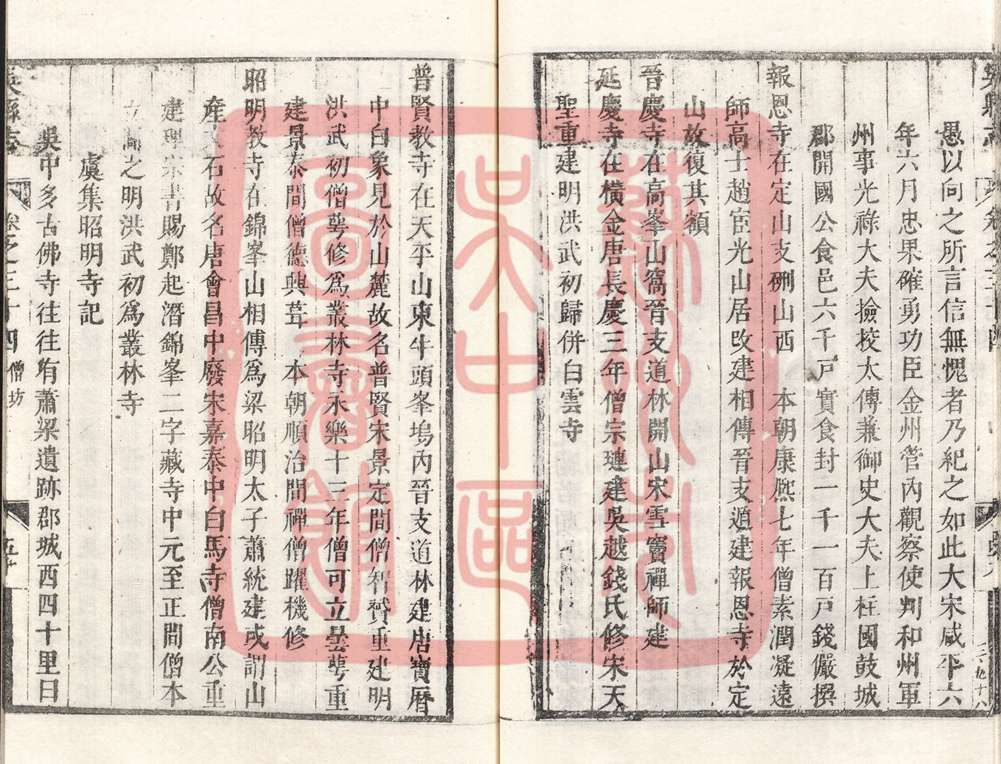 愚以向之所言信無愧者乃紀之如此大宋咸平六
年六月忠果確勇功臣金州管內觀察使判和州軍
州事光祿大夫撿校太傅兼御史大夫上柱國鼓城
郡開國公食邑六千戸實食封一千一百戸錢儼撰
報恩寺在定山支硎山西 本朝康熙七年僧素潤凝遠
師高士趙宧光山居改建相傳晉支遁建報恩寺於定
山故復其額
晉慶寺在高峯山篙晉支道林開山宋雪竇禪師建
延慶寺在橫金唐長慶三年僧宗璉建吳越錢氏修宋天
聖重建明洪武初歸併白雲寺
普賢教寺在天平山東牛頭峯塢內晉支道林建唐寶曆
中白象見於山麓故名普賢宋景定間僧智贇重建明
洪武初僧蕚修爲叢林寺永樂十三年僧可立曇蕚重
建景泰間僧德興葺 本朝順治間禪僧躍機修
昭明教寺在錦峯山相傳爲梁昭明太子蕭統建或謂山
產石故名唐會昌中廢宋嘉泰中白馬寺僧南公重
建理宗書賜鄭起潛錦峯二字藏寺中元至正間僧本
立之明洪武初爲叢林寺
虞集昭明寺記
吳中多古佛寺往往有蕭梁遺跡郡城西四十里曰
吳縣志 卷之三十四 僧坊
蘇州市
吳中區
圖書館